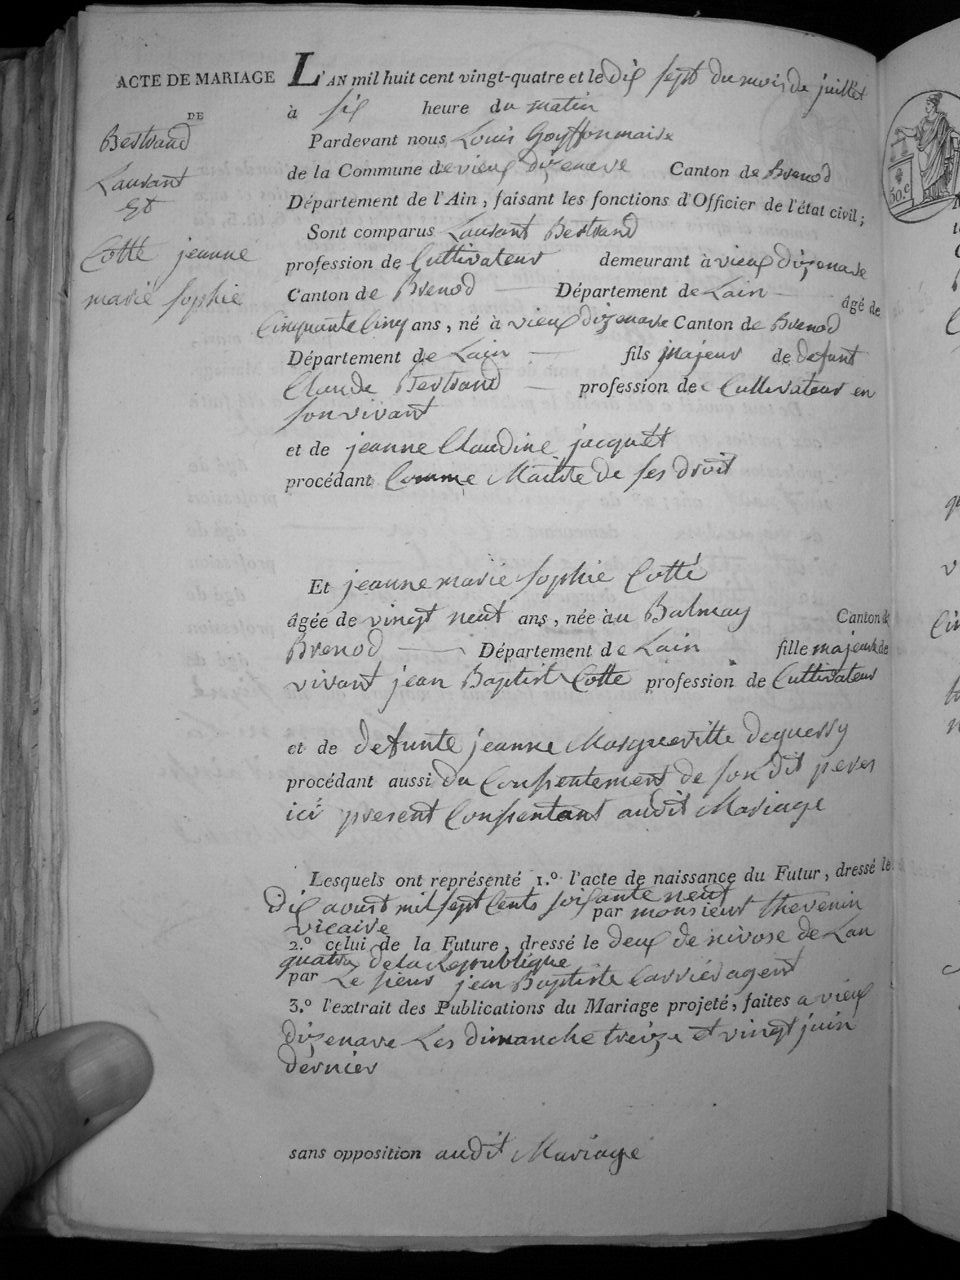 ACTE DE MARIAGE
DE
Bertrand
Laurant
Et
Cotté jeanne
marie sophie
L'AN mil huit cent vingt-quatre et le dix sept du mois de juillet
à six heure du matin
Pardevant nous Louis Goyffon maire
de la Commune de vieux dizenave Canton de Brenod
Département de l'Ain, faisant les fonctions d'Officier de l'état civil;
Sont comparus Laurant Bertrand
profession de Cultivateur demeurant à vieux dizenave
Canton de Brenod Département de Lain âgé de
Cinquante Cinq ans, né à vieux dizenave Canton de Brenod
Département de Lain fils majeur de defunt
Claude Bertrand profession de Cultivateur en
son vivant
et de jeanne Claudine jacquét
procédant Comme Maitre de ses droit
Et jeanne marie sophie Cotté
âgée de vingt neuf ans, née àu Balmay Canton de
Brenod Département de Lain fille majeure de
vivant jean Baptiste Cotte profession de Cultivateur
et de defunte jeanne deguerry
procédant aussi du Consentement de son dit peres
ici present Consentant audit Mariage
Lesquels ont représenté 1.º l'acte de naissance du Futur, dressé le
dix aoust mil sept Cents soixante neuf
par monsieur thevenin
vicaire
2.º celui de la Future, dressé le deux de nivose de Lan
quatre de la Republique
par Le sieur jean Baptiste Carrier agent
3.º l'extrait des Publications du Mariage projeté, faites a vieux
dizenave Les dimanche treize et vingt juin
dernier
sans opposition audit Mariage
50.c